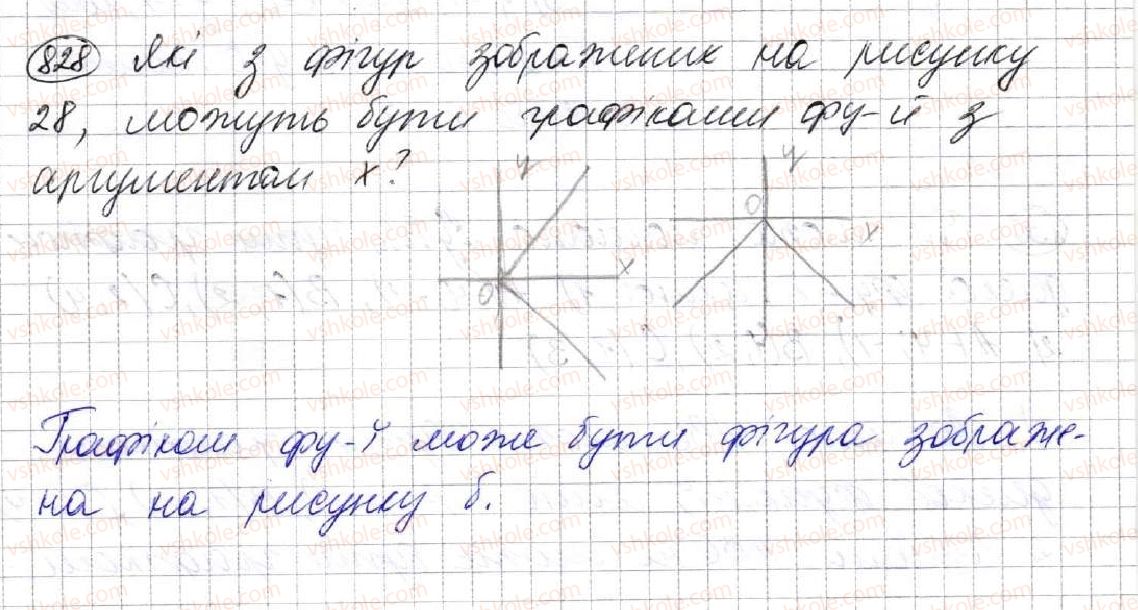 828 Які з фігур зображених на рисунку
28, можуть бути графіками фу-й з
аргументом x?
y
x
O
y
O
x
Графіком фу-ї може бути фігура зображе-
на на рисунку б.